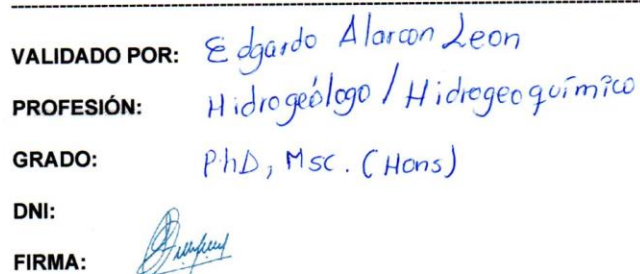 VALIDADO POR: Edgardo Alarcon Leon
PROFESIÓN: Hidrogeólogo / Hidrogeoquímico
GRADO: PhD, Msc. (Hons)
DNI:
FIRMA: